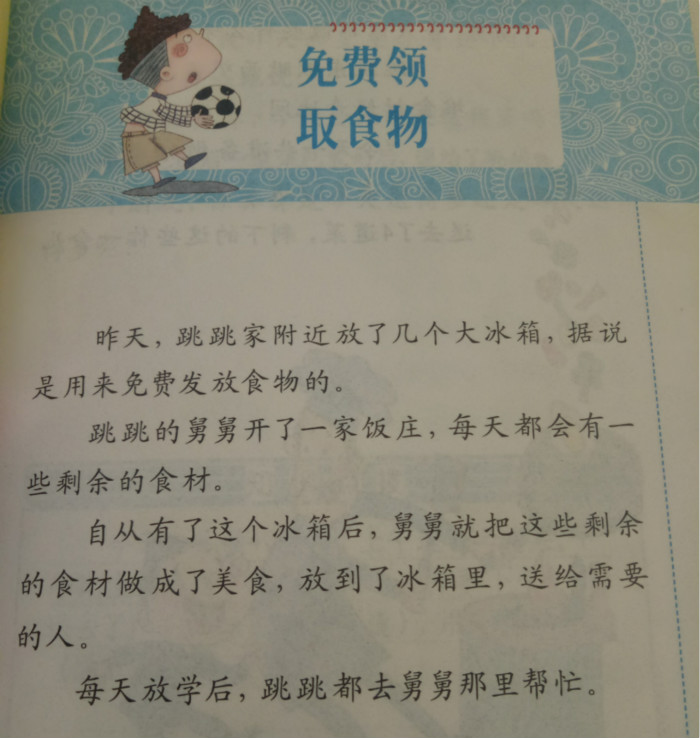 免费领
取食物
昨天，跳跳家附近放了几个大冰箱，据说
是用来免费发放食物的。
跳跳的舅舅开了一家饭庄，每天都会有一
些剩余的食材。
自从有了这个冰箱后，舅舅就把这些剩余
的食材做成了美食，放到了冰箱里，送给需要
的人。
每天放学后，跳跳都去舅舅那里帮忙。